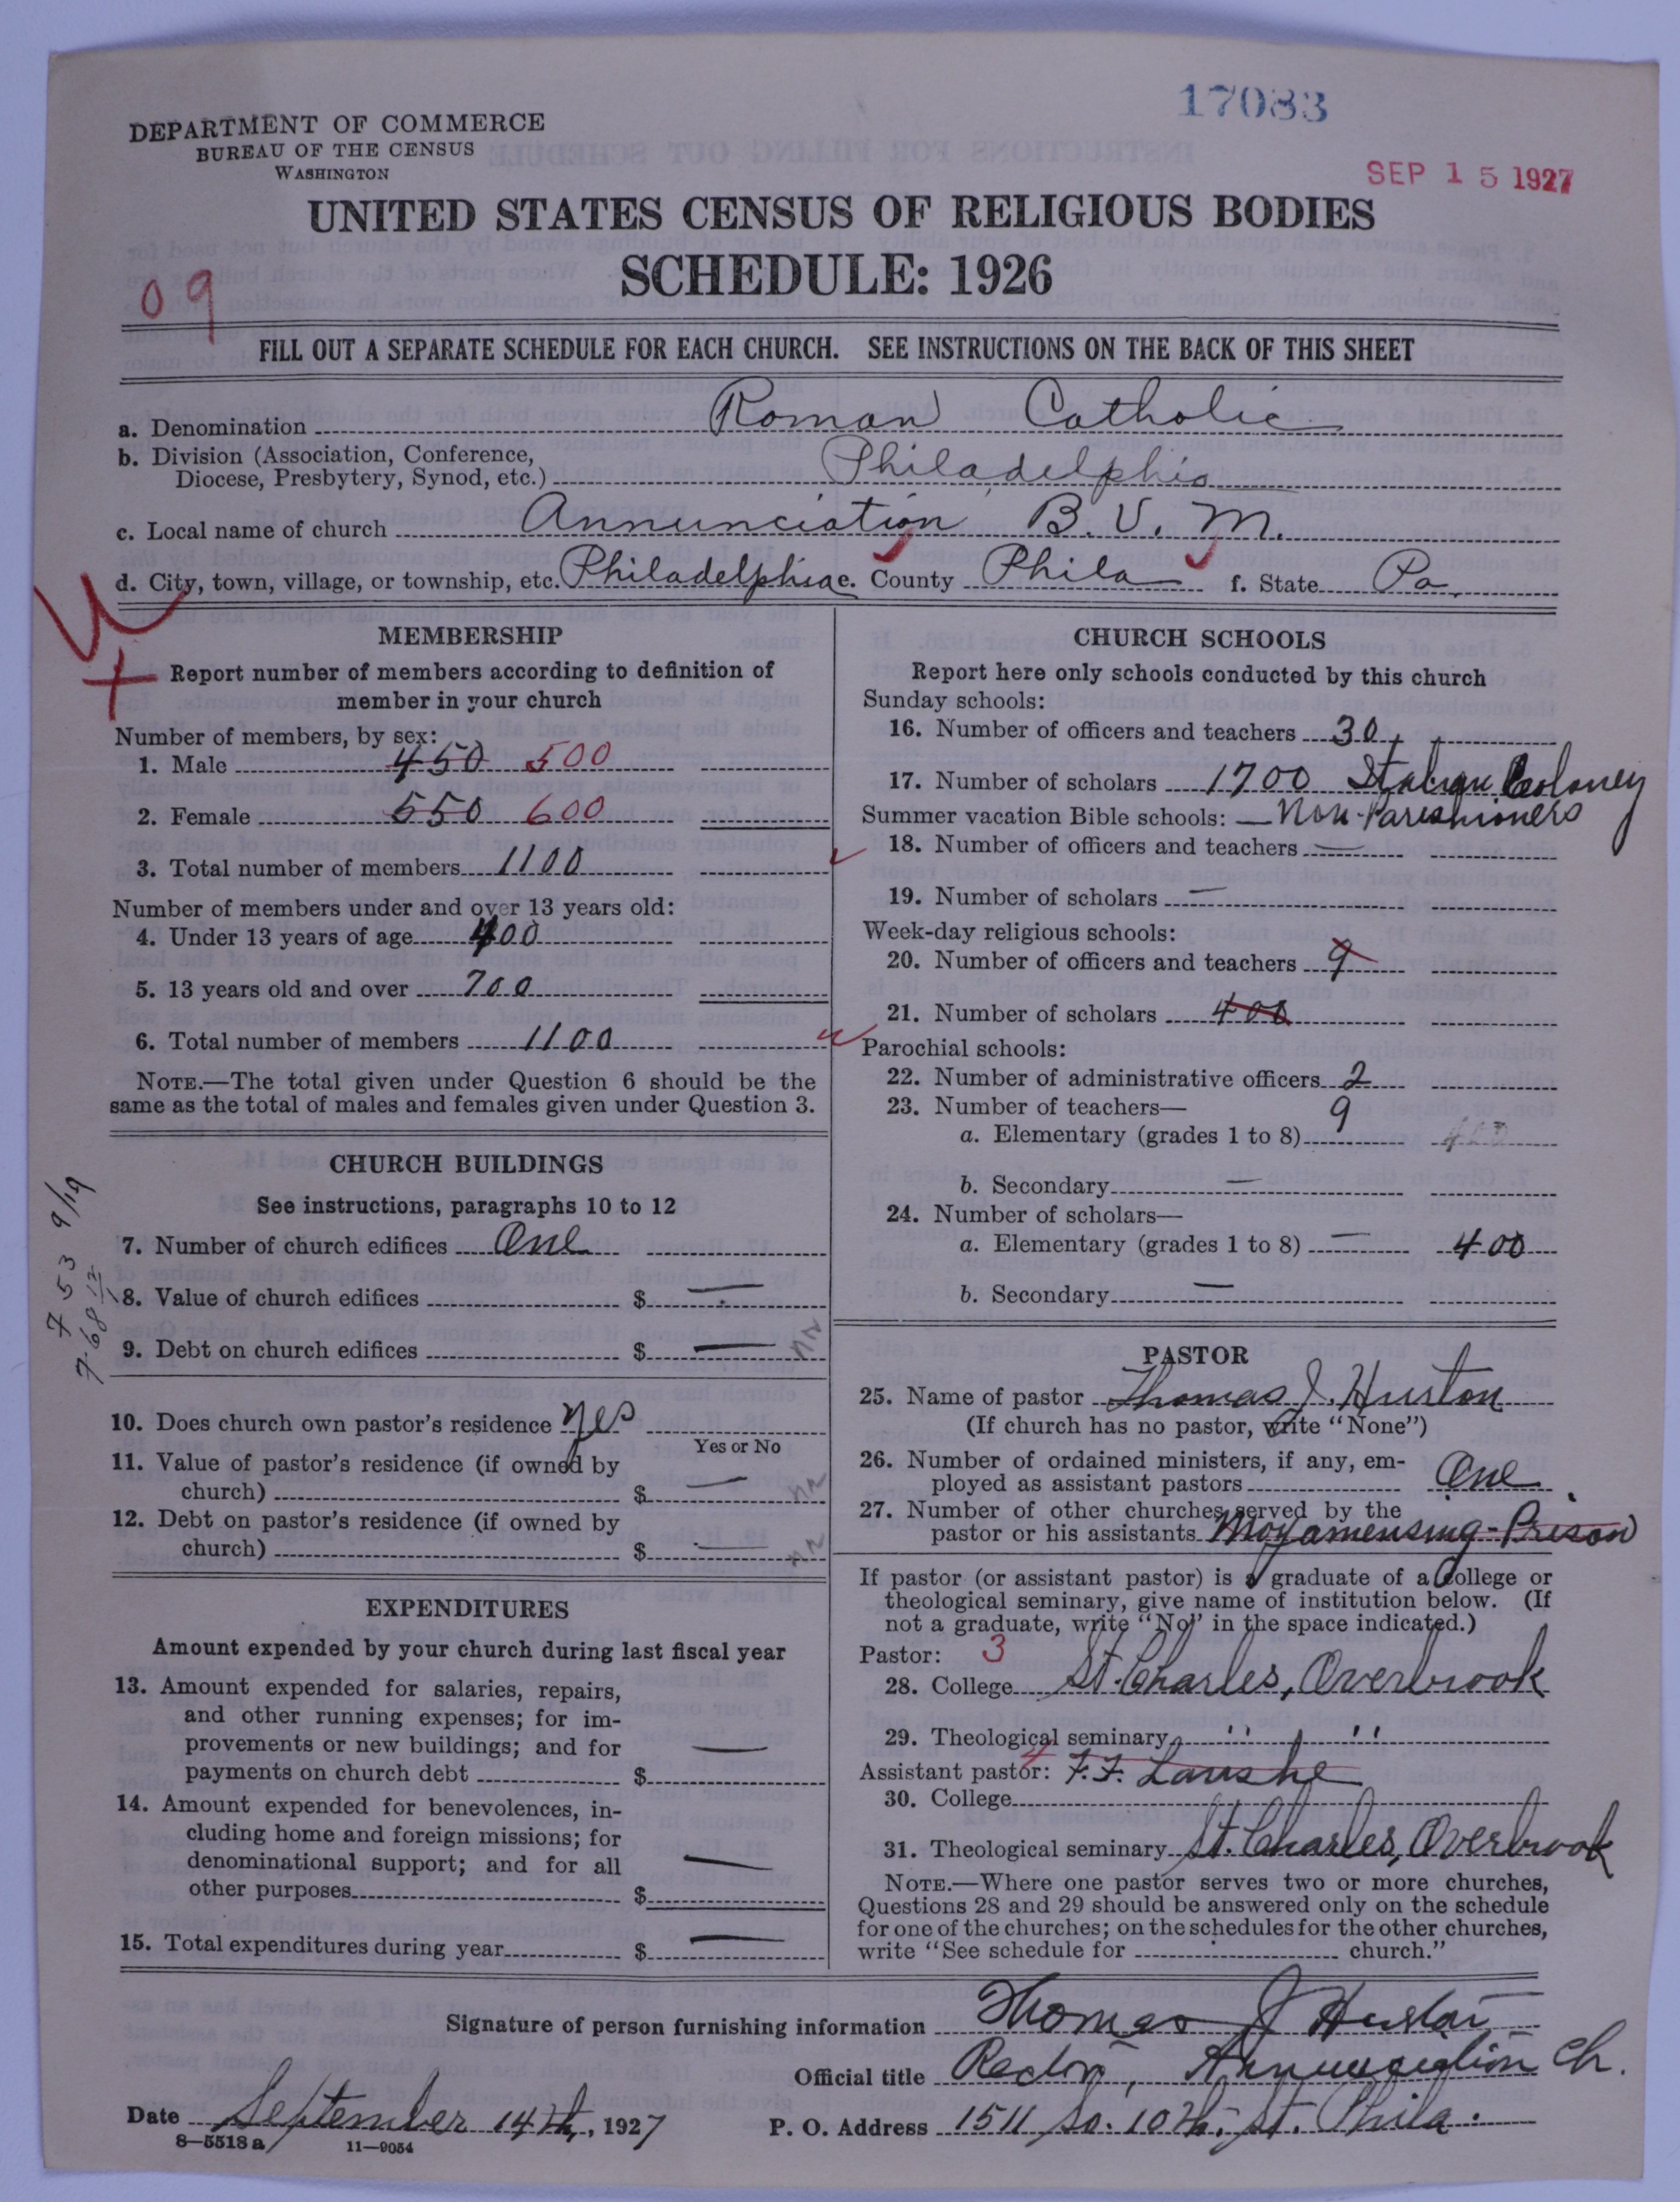 17083
DEPARTMENT OF COMMERCE
BUREAU OF THE CENSUS
WASHINGTON
SEP 15 1927
UNITED STATES CENSUS OF RELIGIOUS BODIES
SCHEDULE: 1926
09
FILL OUT A SEPARATE SCHEDULE FOR EACH CHURCH. SEE INSTRUCTIONS ON THE BACK OF THIS SHEET
a. Denomination Roman Catholic
b. Division (Association, Conference,
Diocese, Presbytery, Synod, etc.) Philadelphia
c. Local name of church Annunciation B. V. M.
d. City, town, village, or township, etc. Philadelphia e. County Phila f. State Pa.
MEMBERSHIP
Report number of members according to definition of
member in your church
Number of members, by sex:
1. Male 450 500
2. Female 550 600
3. Total number of members 1100
Number of members under and over 13 years old:
4. Under 13 years of age 400
5. 13 years old and over 700
6. Total number of members 1100
NOTE.—The total given under Question 6 should be the
same as the total of males and females given under Question 3.
CHURCH BUILDINGS
See instructions, paragraphs 10 to 12
7. Number of church edifices One
8. Value of church edifices $ —
9. Debt on church edifices $ —
10. Does church own pastor's residence Yes
Yes or No
11. Value of pastor's residence (if owned by
church) $ —
12. Debt on pastor's residence (if owned by
church) $ —
753 9/19
768
EXPENDITURES
Amount expended by your church during last fiscal year
13. Amount expended for salaries, repairs,
and other running expenses; for im-
provements or new buildings; and for
payments on church debt $ —
14. Amount expended for benevolences, in-
cluding home and foreign missions; for
denominational support; and for all
other purposes $ —
15. Total expenditures during year $ —
CHURCH SCHOOLS
Report here only schools conducted by this church
Sunday schools:
16. Number of officers and teachers 30
17. Number of scholars 1700 Italian Coloney
Summer vacation Bible schools: — Non-Parishioners
18. Number of officers and teachers —
19. Number of scholars —
Week-day religious schools:
20. Number of officers and teachers 9
21. Number of scholars 400
Parochial schools:
22. Number of administrative officers 2
23. Number of teachers—
a. Elementary (grades 1 to 8) 9 400
b. Secondary —
24. Number of scholars—
a. Elementary (grades 1 to 8) — 400
b. Secondary —
PASTOR
25. Name of pastor Thomas J. Hurton
(If church has no pastor, write "None")
26. Number of ordained ministers, if any, em-
ployed as assistant pastors One
27. Number of other churches served by the
pastor or his assistants Moyamensing-Prison
If pastor (or assistant pastor) is a graduate of a college or
theological seminary, give name of institution below. (If
not a graduate, write "No" in the space indicated.)
Pastor: 3
28. College St. Charles, Overbrook
29. Theological seminary " "
Assistant pastor: 4 F. F.
30. College
31. Theological seminary St. Charles, Overbrook
NOTE.—Where one pastor serves two or more churches,
Questions 28 and 29 should be answered only on the schedule
for one of the churches; on the schedules for the other churches,
write "See schedule for church."
Signature of person furnishing information Thomas J Hurton
Official title Rector, Annunciation Ch.
Date September 14th, 1927 P. O. Address 1511 So. 10th. St. Phila.
8—5518 a 11—9054